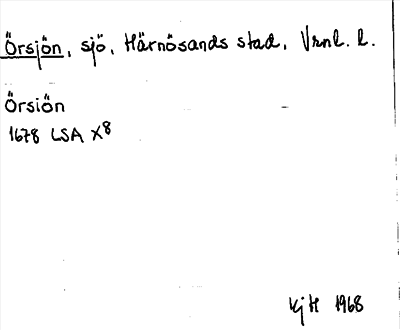 Örsjön, sjö, Härnösands stad, Vrnl. l.
Örsiön
1678 LSA X8
KjH 1968